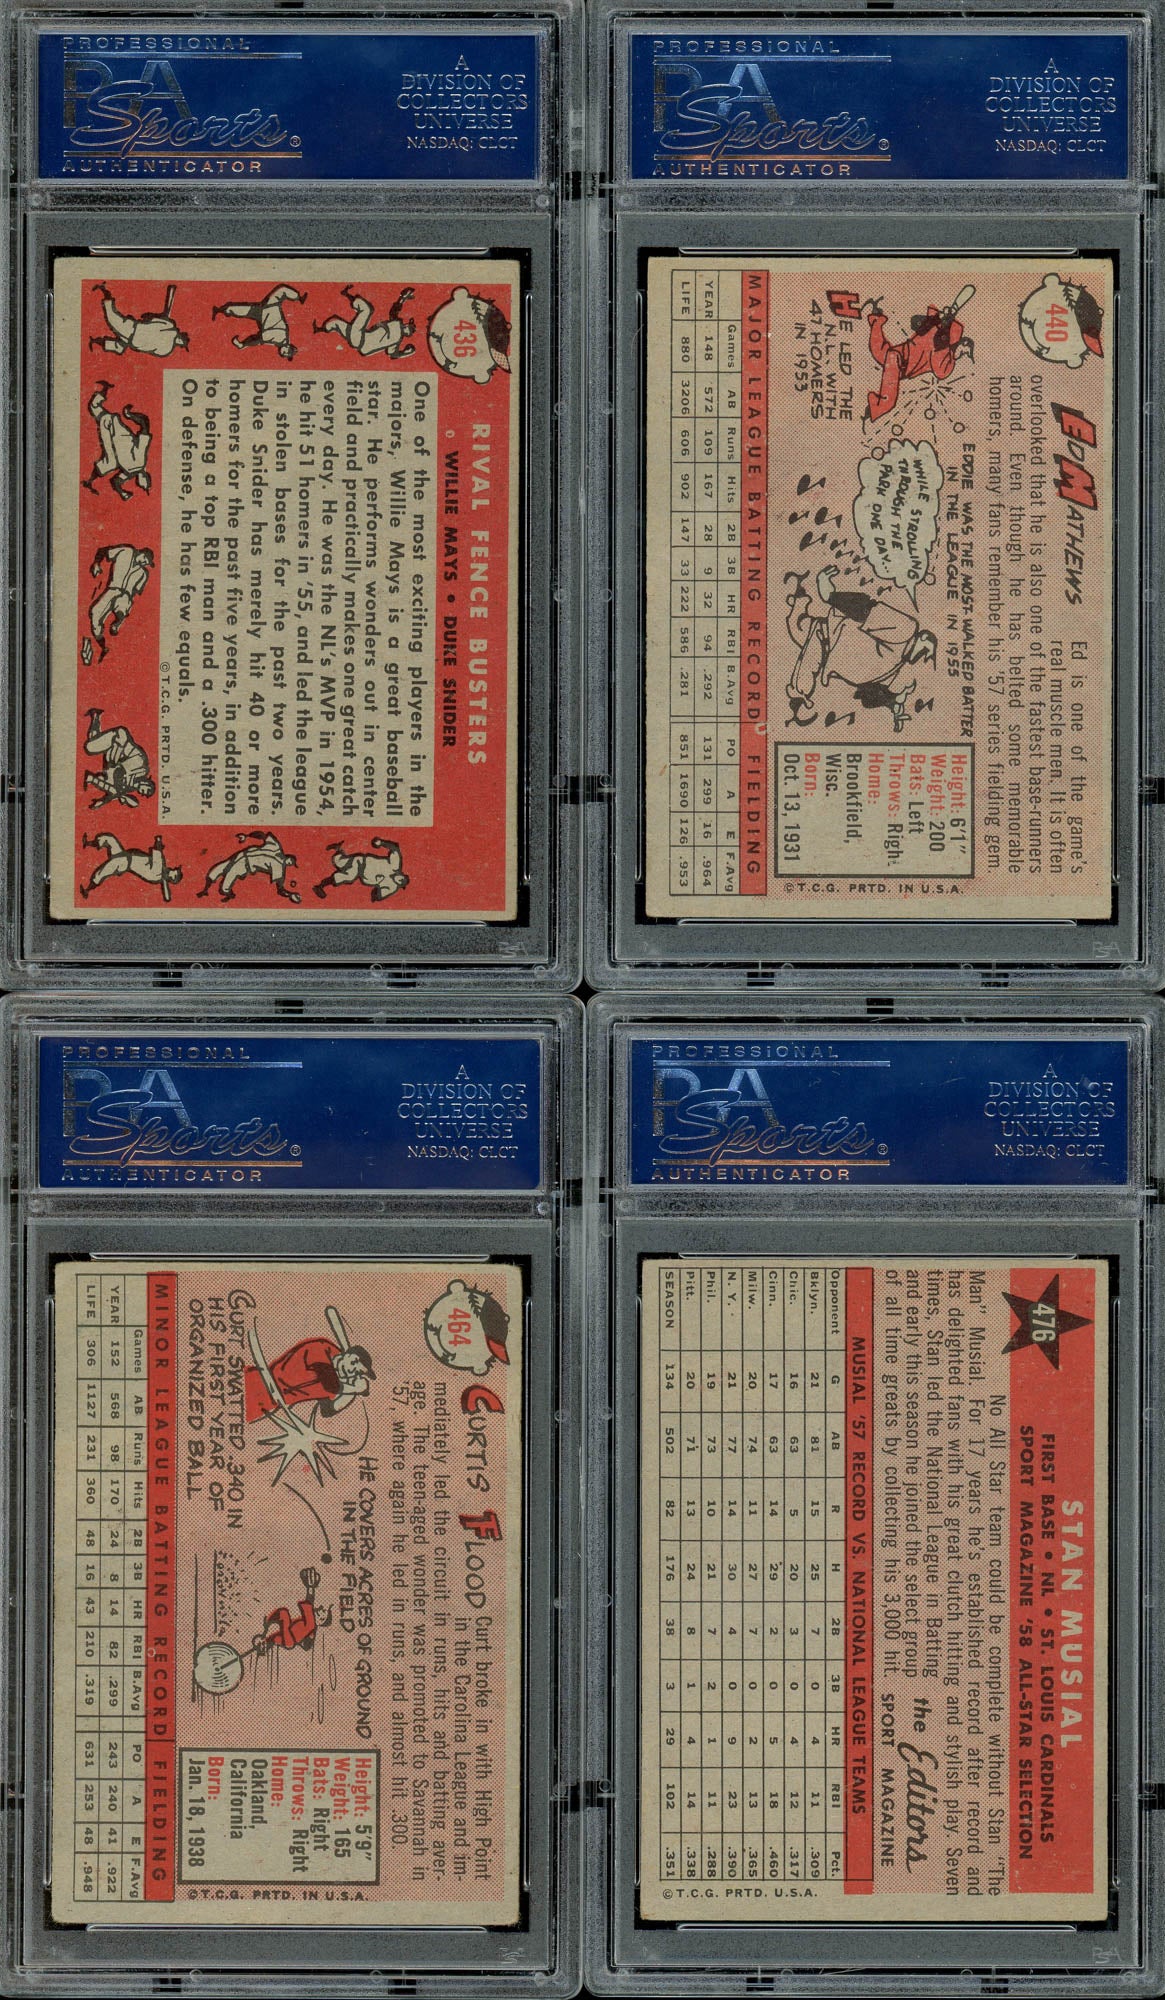 PROFESSIONAL
PSA
Sports®
AUTHENTICATOR
A
DIVISION OF
COLLECTORS
UNIVERSE
NASDAQ: CLCT
436
RIVAL FENCE BUSTERS
WILLIE MAYS • DUKE SNIDER
One of the most exciting players in the
majors, Willie Mays is a great baseball
star. He performs wonders out in center
field and practically makes one great catch
every day. He was the NL's MVP in 1954,
he hit 51 homers in '55, and led the league
in stolen bases for the past two years.
Duke Snider has merely hit 40 or more
homers for the past five years, in addition
to being a top RBI man and a .300 hitter.
On defense, he has few equals.
© T.C.G. PRTD. U.S.A.
PROFESSIONAL
PSA
Sports®
AUTHENTICATOR
A
DIVISION OF
COLLECTORS
UNIVERSE
NASDAQ: CLCT
440
ED MATHEWS
Ed is one of the game's
real muscle men. It is often
overlooked that he is also one of the fastest base-runners
around. Even though he has belted some memorable
homers, many fans remember his '57 series fielding gem.
EDDIE WAS THE MOST WALKED BATTER
IN THE LEAGUE IN 1955
WHILE STROLLING
THROUGH THE
PARK ONE DAY..
HE LED THE
N.L. WITH
47 HOMERS
IN 1953
Height: 6'1"
Weight: 200
Bats: Left
Throws: Right
Home:
Brookfield,
Wisc.
Born:
Oct. 13, 1931
© T.C.G. PRTD. IN U.S.A.
MAJOR LEAGUE BATTING RECORD FIELDING
Games AB Runs Hits 2B 3B HR RBI B.Avg PO A E F.Avg
YEAR 148 572 109 167 28 9 32 94 .292 131 299 16 .964
LIFE 880 3206 606 902 147 33 222 586 .281 851 1690 126 .953
PROFESSIONAL
PSA
Sports®
AUTHENTICATOR
A
DIVISION OF
COLLECTORS
UNIVERSE
NASDAQ: CLCT
464
CURTIS FLOOD
Curt broke in with High Point
in the Carolina League and im-
mediately led the circuit in runs, hits and batting aver-
age. The teen-aged wonder was promoted to Savannah in
'57, where again he led in runs, and almost hit .300.
HE COVERS ACRES OF GROUND
IN THE FIELD
CURT SWATTED .340 IN
HIS FIRST YEAR OF
ORGANIZED BALL
Height: 5'9"
Weight: 165
Bats: Right
Throws: Right
Home:
Oakland,
California
Born:
Jan. 18, 1938
© T.C.G. PRTD. IN U.S.A.
MINOR LEAGUE BATTING RECORD FIELDING
Games AB Runs Hits 2B 3B HR RBI B.Avg PO A E F.Avg
YEAR 152 568 98 170 24 8 14 82 .299 243 240 41 .922
LIFE 306 1127 231 360 48 16 43 210 .319 631 253 48 .948
PROFESSIONAL
PSA
Sports®
AUTHENTICATOR
A
DIVISION OF
COLLECTORS
UNIVERSE
NASDAQ: CLCT
476
STAN MUSIAL
FIRST BASE • NL • ST. LOUIS CARDINALS
SPORT MAGAZINE '58 ALL-STAR SELECTION
No All Star team could be complete without Stan "The
Man" Musial. For 17 years he's established record after record and
has delighted fans with his great clutch hitting and stylish play. Seven
times, Stan led the National League in Batting
and early this season he joined the select group
of all time greats by collecting his 3,000 hit.
the Editors
SPORT MAGAZINE
MUSIAL '57 RECORD VS. NATIONAL LEAGUE TEAMS
Opponent G AB R H 2B 3B HR RBI Pct.
Bklyn. 21 81 15 25 7 0 4 11 .309
Chic. 16 63 5 20 3 0 4 12 .317
Cinn. 17 63 14 29 2 0 5 18 .460
Milw. 20 74 11 27 7 0 2 13 .365
N. Y. 21 77 14 30 4 0 9 23 .390
Phil. 19 73 10 21 7 2 1 11 .288
Pitt. 20 71 13 24 8 1 4 14 .338
SEASON 134 502 82 176 38 3 29 102 .351
© T.C.G. PRTD. U.S.A.